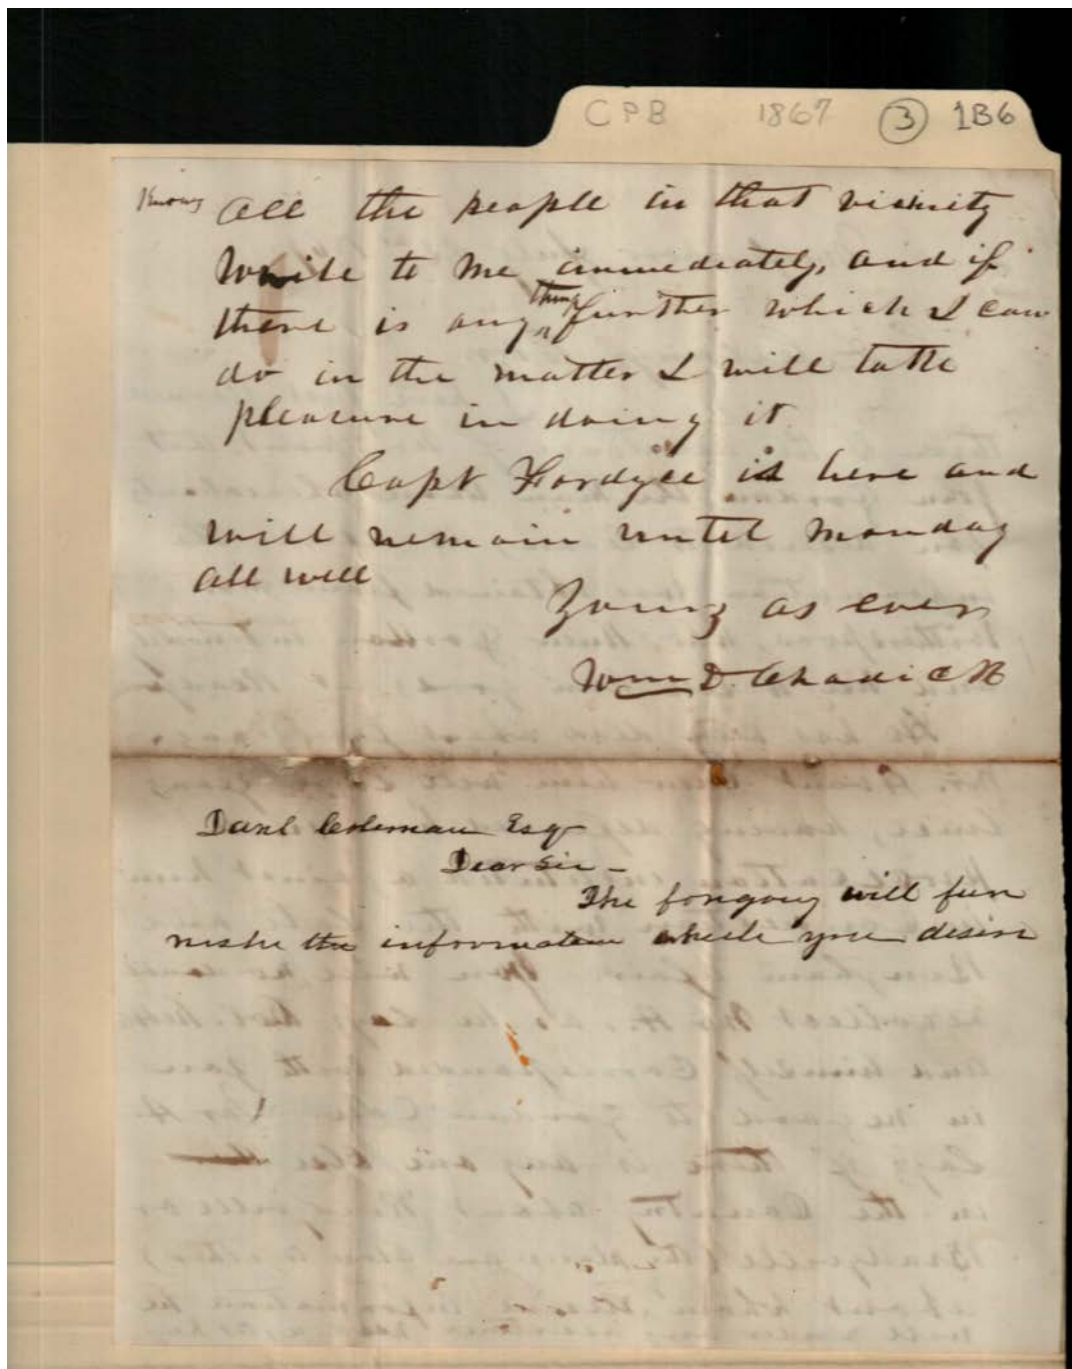 CPB 1867 3 1B6
Knows all the people in that vicinity
Write to me immediately, and if
there is any thing further which I can
do in the matter I will take
pleasure in doing it
Capt Fordyce is here and
will remain until Monday
All well
Yours as ever
Wm D. Chadick
Danl Coleman Esq
Dear Sir -
The forgoing will fur
nish the information which you desire